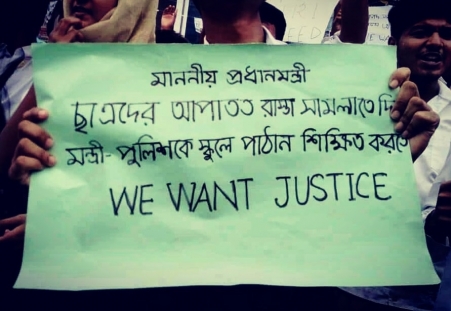 মাননীয় প্রধানমন্ত্রী
ছাত্রদের আপাতত রাস্তা সামলাতে দিন
মন্ত্রী-পুলিশকে স্কুলে পাঠান শিক্ষিত করতে
WE WANT JUSTICE